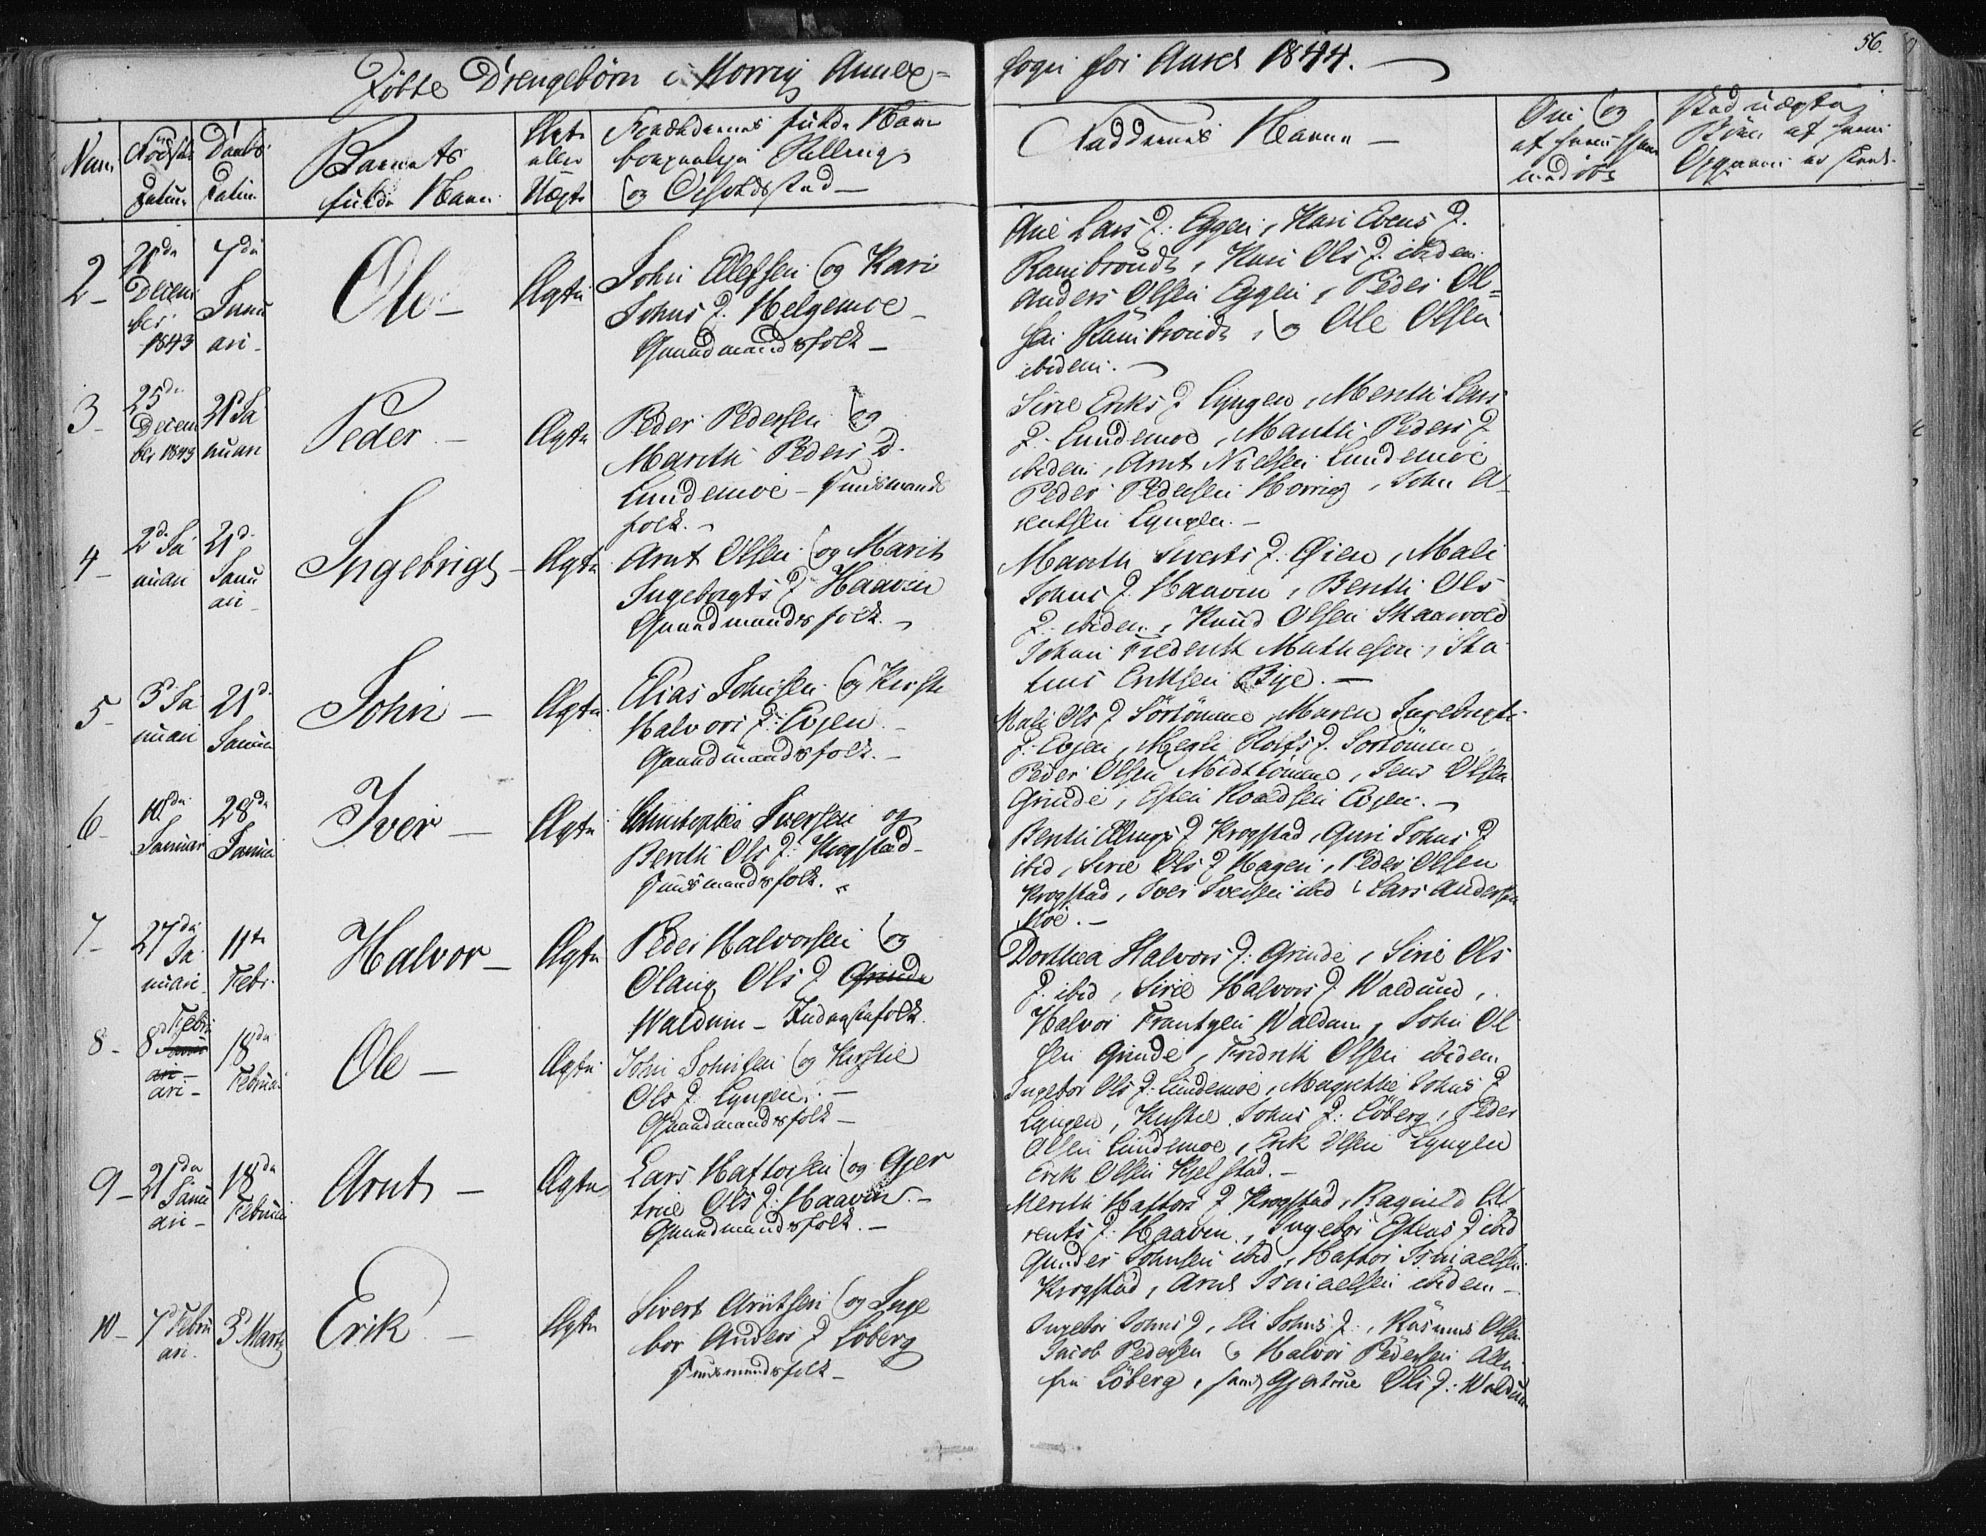 Døbte Drengebørn i Horrig Annex=
sogn for Aaret 1844.
56.
Num
Fødsels
Datum
Daabs
Datum
Barnets
fulde Navn
Ægte
eller
Uægte
Forældrenes fulde Navn
borgerlige Stilling
og Opholdsstad
Faddernes Navne
Om og
af hvem hjem
medøbt
2
28de
Decem
ber
1843
7de
Janu
ari
Ole
Ægte
John Ellefsen og Kari
Johns D. Helgemoe
Gaardmandsfolk
Ane Lars D: Eggen, Kari Evens D.
Kari Ols D ibidem
Anders Olsen Eggen, Peder Ol=
sen og Ole Olsen
ibidem.
3
25de
Decem
ber 1843
21de Ja
nuari
Peder
Ægte
Peder Pedersen og
Marith Peders D.
Lundemoe - Huusmands
folk.
Sirie Eriks D Lyngen, Merethe Lars
D. Lundemoe, Marith Peders D
ibidem, Arnt Nielsen Lundemoe
Peder Pedersen Horrig, John A-
rentsen Lyngen.
4
2de Ja
nuari
21de
Janu
ari
Ingebrigt
Ægte
Arnt Olsen og Marit
Ingebrigts D Haaven
Gaardmandsfolk.
Marith Siverts D. Øien, Mali
Johns D. Haaven, Berith Ols
D. ibidem, Knud Olsen Skaarvold
Johan Frederik Mathesen, Sta-
tius Eriksen Bye.
5
3de Ja
nuari
21de
Januar
John
Ægte
Elias Johnsen og Kirsti
Halvors D: Evjen
Gaardmandsfolk.
Mali Ols D Sørtømme, Maren Ingebrigts
D. Evjen, D. Sørtømme
Peder Olsen Midttømme, Jens Olsen
Grinde, Esten Evjen.
6
10de
Januar
28de
Januar
Iver
Ægte
Christopher Iversen og
Berith Ols D. Krogstad
Huusmandsfolk.
Berith D Krogstad, Guri Johns D
ibid, Sirie Ols D Hagen, Peder Olsen
Krogstad, Iver Iversen ibid, Lars Andersen
Moe.
7
27de
Ja
nuari
11te
Febr.
Halvor
Ægte
Peder Halvorsen og
Olaug Ols D Grinde
Waldum - Inderstfolk.
Dorthea Halvors D. Grinde, Sirie Ols
D. ibid, Sirie Halvors D Waldum,
Halvor Frantzen Waldum, John Ol
sen Grinde, Fredrik Olsen ibidem
8
8de Febru
ari
18de
Februari
Ole
Ægte
John Johnsen og Kirstie
Ols D. Lyngen.
Gaardmandsfolk
Ingebor Ols D. Lundemoe, Magrethe Johns D
Lyngen, Kirstie Johns D: Løberg, Peder
Olsen Lundemoe, Erik Olsen Lyngen
Erik Olsen Kjelstad.
9
21de
Janu
ari
18de
Februari
Arnt
Ægte
Lars Haftorsen og Gjer
true Ols D. Haaven.
Gaardmandsfolk.
Merith Haftors D Krogstad, Ragnild A-
rents D. Haaven, Ingebor Estens D ibid
Gunder Johnsen ibid, Haftor Ismaelsen
Krogstad, Arnt Ismaelsen ibidem
10
7de Febru
ari.
3de Martz
Erik
Ægte
Sivert Arntsen og Inge
bor Anders D Løberg
Huusmandsfolk
Ingebor Johns D, Eli Johns D., Rasmus Olsen
Jacob Pedersen og Halvor Pedersen Alle
fra Løberg, samt Gjertrue Ols D. Waldum